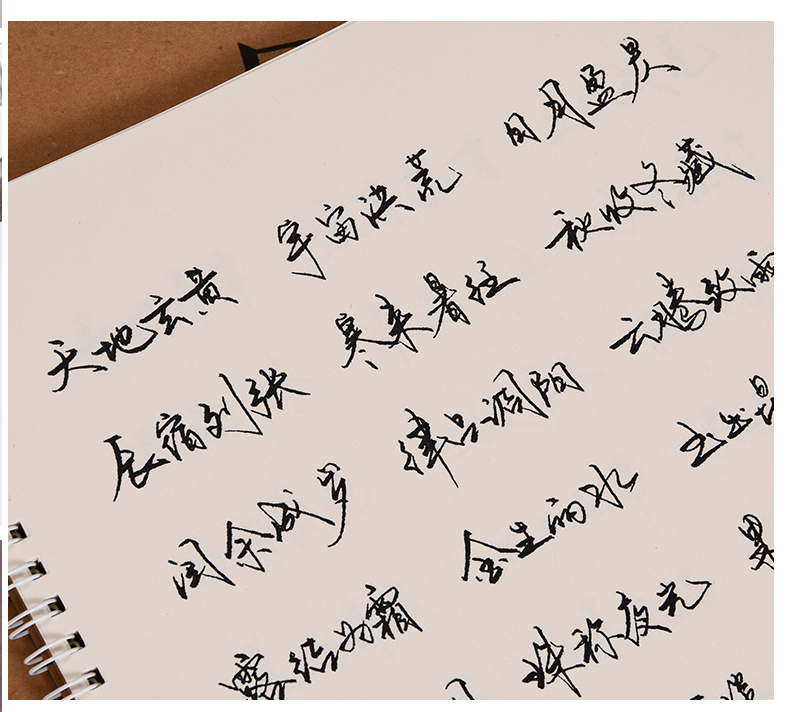 天地玄黄 宇宙洪荒 日月盈昃
辰宿列张 寒来暑往 秋收冬藏
闰余成岁 律吕调阳 云腾致雨
露结为霜 金生丽水 玉出昆
珠称夜光 果